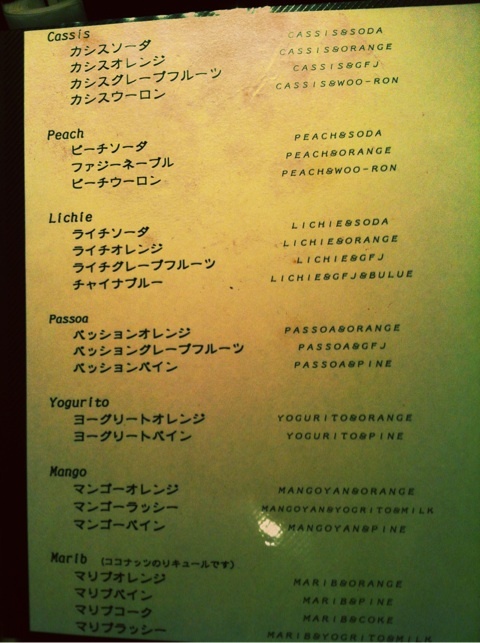 Cassis
カシスソーダ CASSIS&SODA
カシスオレンジ CASSIS&ORANGE
カシスグレープフルーツ CASSIS&GFJ
カシスウーロン CASSIS&WOO-RON
Peach
ピーチソーダ PEACH&SODA
ファジーネーブル PEACH&ORANGE
ピーチウーロン PEACH&WOO-RON
Lichie
ライチソーダ LICHIE&SODA
ライチオレンジ LICHIE&ORANGE
ライチグレープフルーツ LICHIE&GFJ
チャイナブルー LICHIE&GFJ&BULUE
Passoa
パッションオレンジ PASSOA&ORANGE
パッショングレープフルーツ PASSOA&GFJ
パッションパイン PASSOA&PINE
Yogurito
ヨーグリートオレンジ YOGURITO&ORANGE
ヨーグリートパイン YOGURITO&PINE
Mango
マンゴーオレンジ MANGOYAN&ORANGE
マンゴーラッシー MANGOYAN&YOGRITO&MILK
マンゴーパイン MANGOYAN&PINE
Marib (ココナッツのリキュールです)
マリブオレンジ MARIB&ORANGE
マリブパイン MARIB&PINE
マリブコーク MARIB&COKE
マリブラッシー MARIB&YOGRITO&MILK